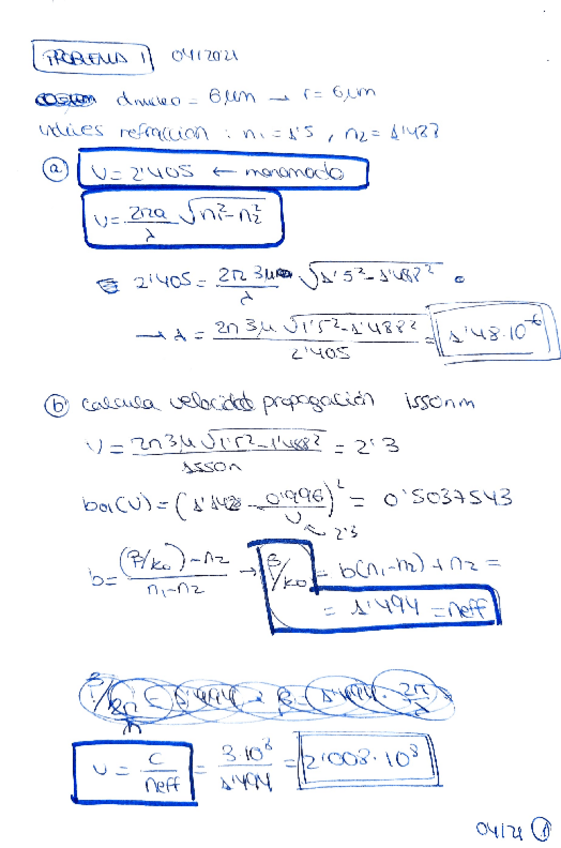 PROBLEMA 1 04/2021
dnucleo = 6μm → r = 6μm
índices refracción : n1 = 1'5 , n2 = 1'488
a) V = 2'405 ← monomodo
V = 2πa/λ √(n1² - n2²)
2'405 = 2π 3μ/λ √(1'5² - 1'488²)
→ λ = 2π 3μ √(1'5² - 1'488²)/2'405 = 1'48·10^-6
b) calcula velocidad propagación 1550nm
V = 2π3μ√(1'5² - 1'488²)/1550n = 2'3
b01(V) = (1'142 - 0'996/V)² = 0'5037543
2'3
b = ((β/k0) - n2)/(n1 - n2) → β/k0 = b(n1 - n2) + n2 =
= 1'494 = neff
v = c/neff = 3·10^8/1'494 = 2'008·10^8
04/21 1